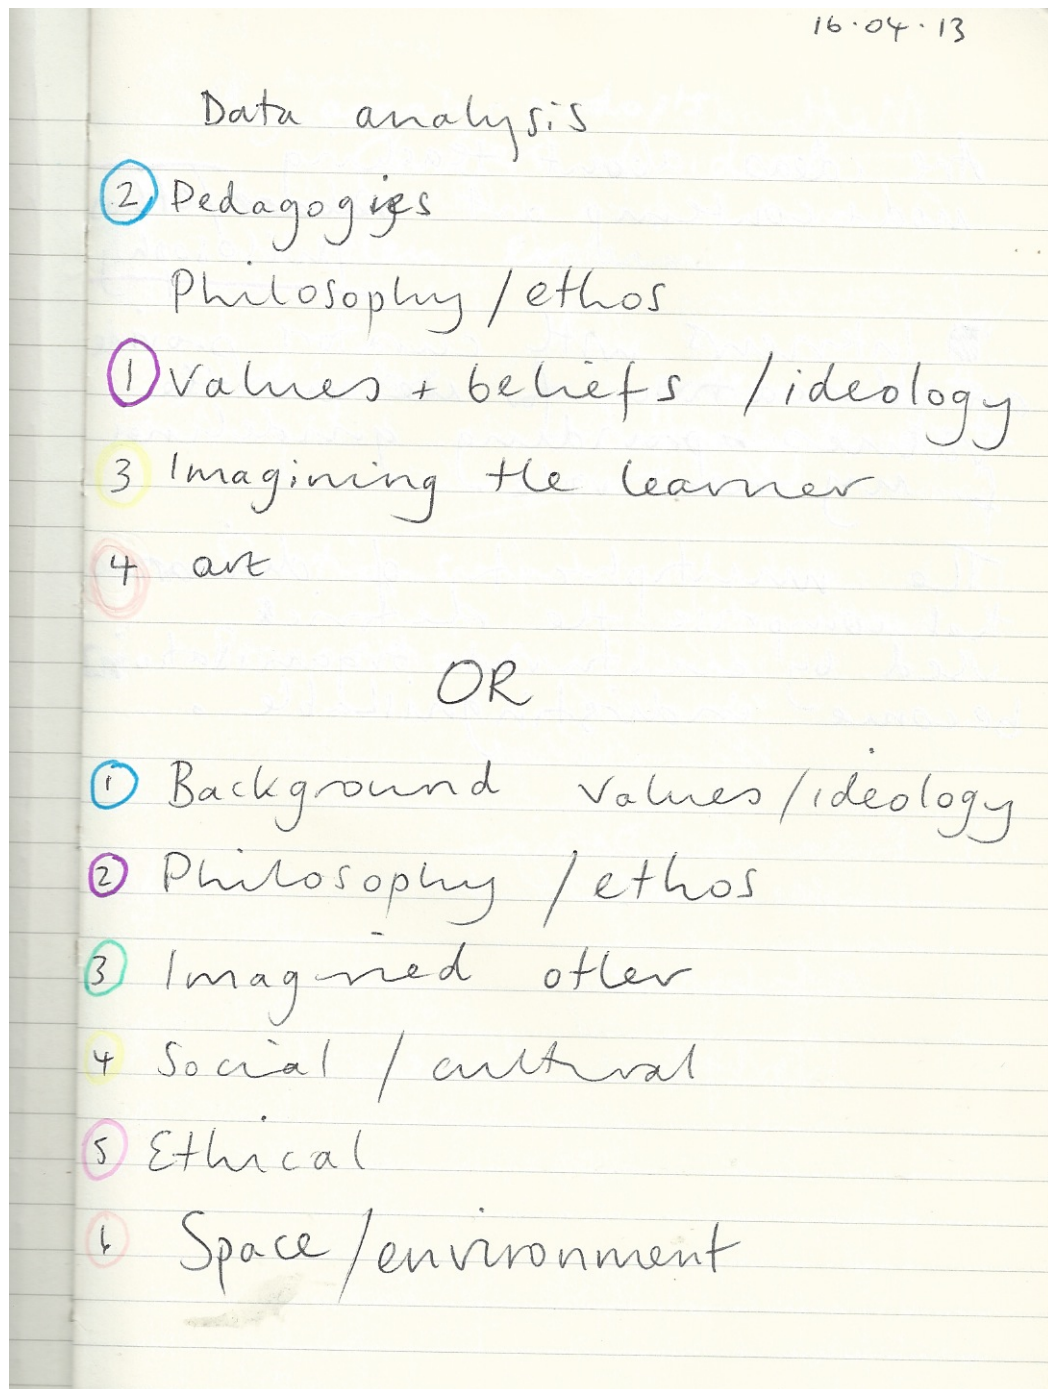 16.04.13
Data analysis
2 Pedagogies
Philosophy / ethos
1 Values + beliefs / ideology
3 Imagining the learner
4 art
OR
1 Background values / ideology
2 Philosophy / ethos
3 Imagined other
4 Social / cultural
5 Ethical
6 Space / environment